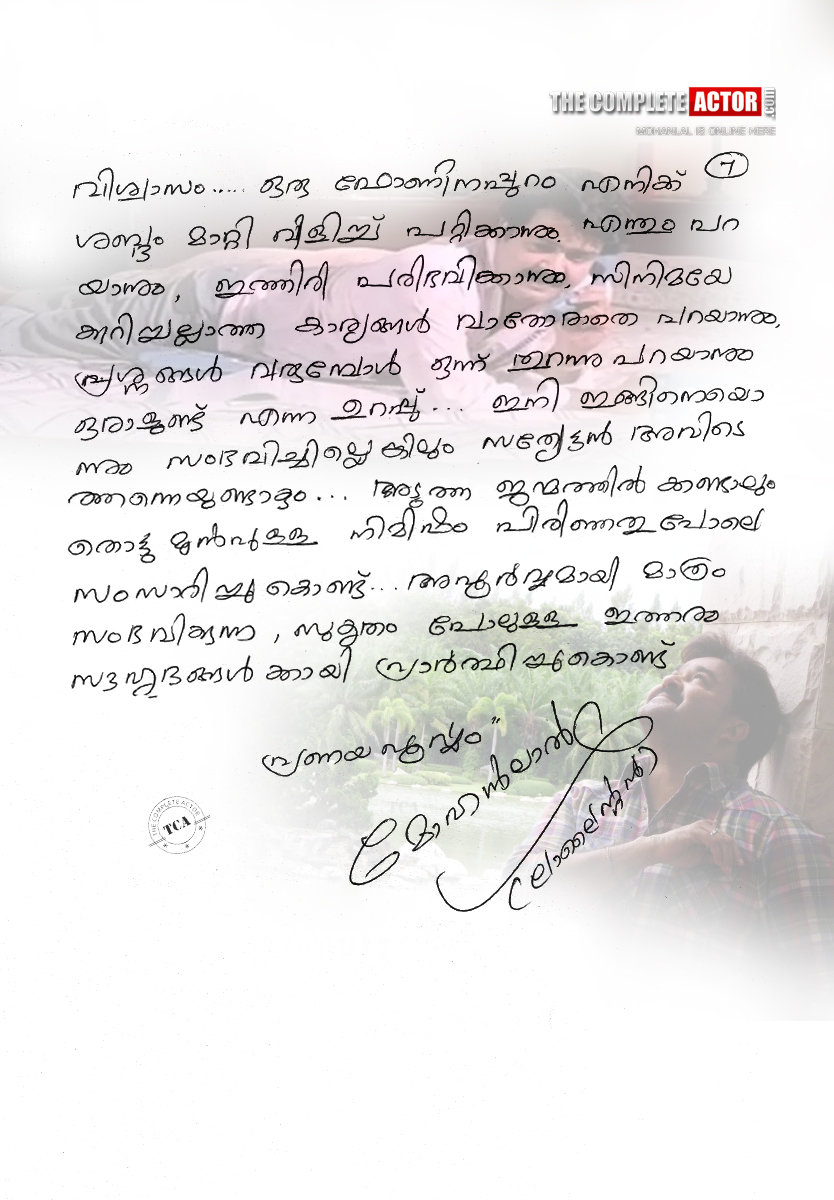 THE COMPLETE ACTOR .com
MOHANLAL IS ONLINE HERE
7
വിശ്വാസം..... ഒരു ഫോണിനപ്പുറം എനിക്ക്
ശബ്ദം മാറ്റി വിളിച്ച് പറ്റിക്കാനും. എന്തും പറ
യാനും, ഇത്തിരി പരിഭവിക്കാനും, സിനിമയേ
കുറിച്ചല്ലാത്ത കാര്യങ്ങൾ വാതോരാതെ പറയാനും,
പ്രശ്നങ്ങൾ വരുമ്പോൾ ഒന്ന് തുറന്നു പറയാനും
ഒരാളുണ്ട് എന്ന ഉറപ്പ്... ഇനി ഇങ്ങിനെയൊ
ന്നും സംഭവിച്ചില്ലെങ്കിലും സത്യേട്ടൻ അവിടെ
ത്തന്നെയുണ്ടാകും... അടുത്ത ജന്മത്തിൽ കണ്ടാലും
തൊട്ടു മുൻപുള്ള നിമിഷം പിരിഞ്ഞതുപോലെ
സംസാരിച്ചു കൊണ്ട്... അപൂർവ്വമായി മാത്രം
സംഭവിക്കുന്ന, സുകൃതം പോലുള്ള ഇത്തരം
സൗഹൃദങ്ങൾക്കായി പ്രാർത്ഥിച്ചുകൊണ്ട്
പ്രണയപൂർവ്വം"
മോഹൻലാൽ
THE COMPLETE ACTOR
TCA